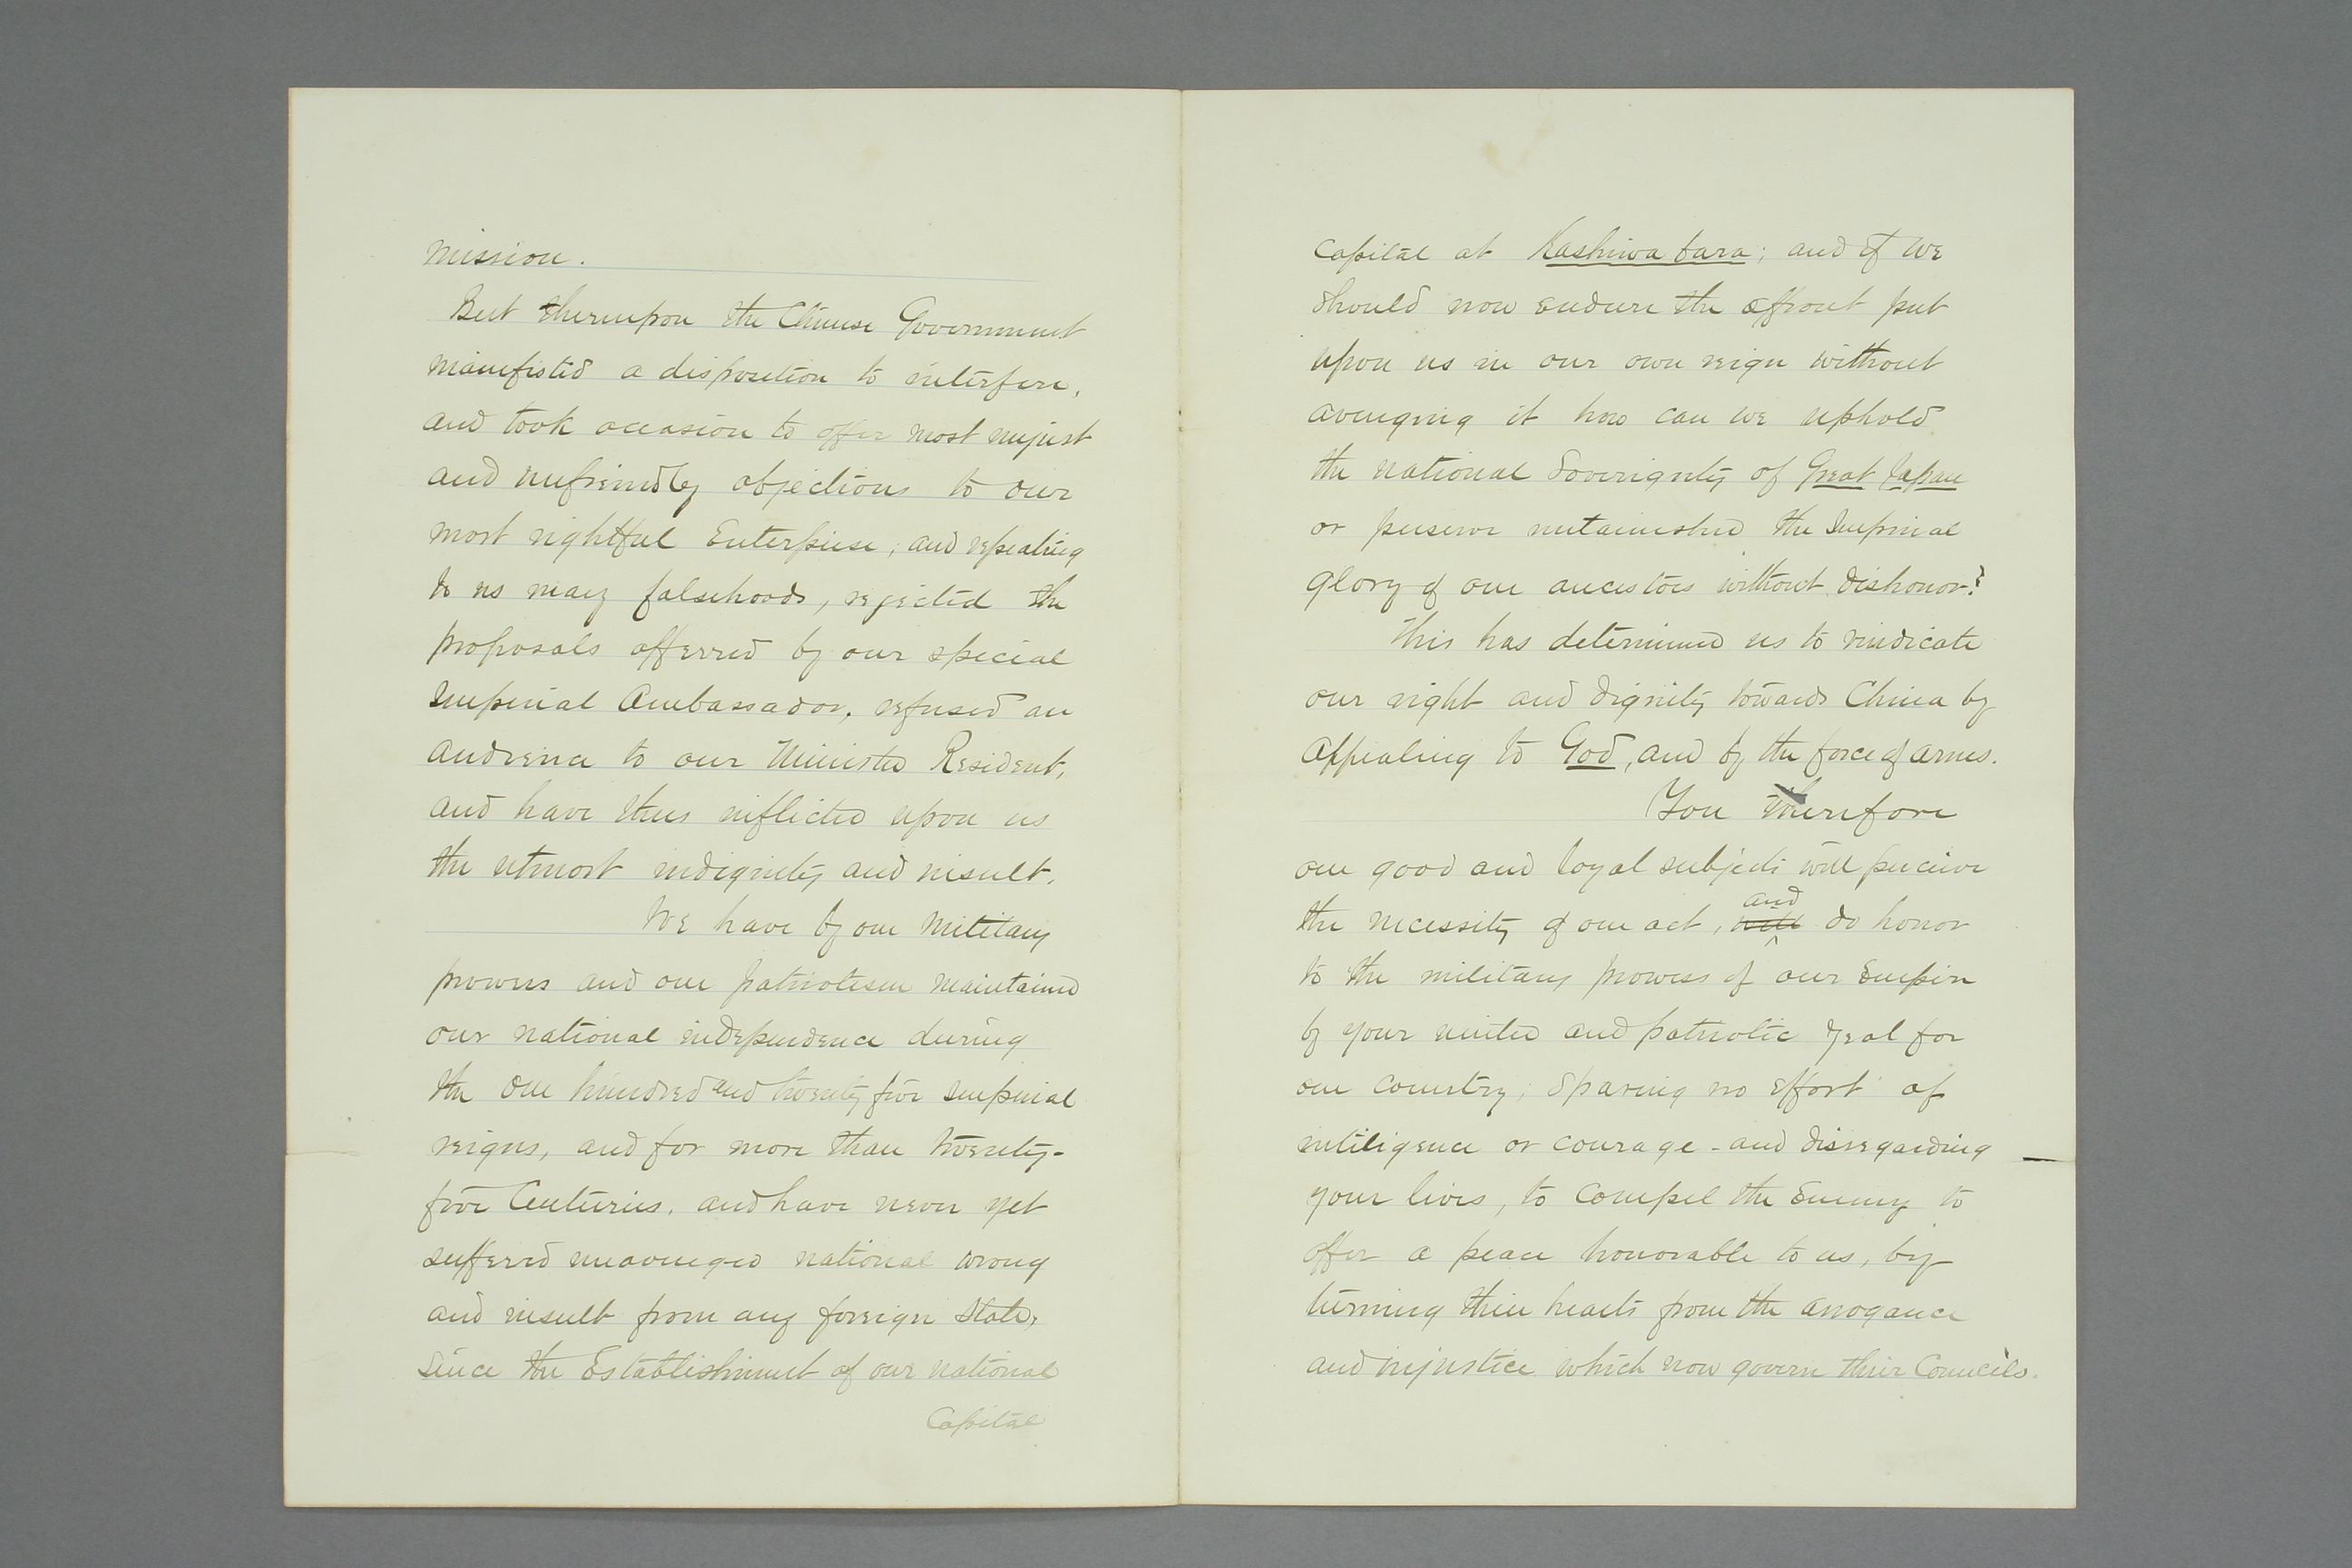 mission.
But thereupon the Chinese Government
manifested a disposition to interfere,
and took occasion to offer most unjust
and unfriendly objections to our
most rightful Enterprise; and repeating
to us many falsehoods, rejected the
proposals offerred by our special
Imperial Ambassador, refused an
audience to our Minister Resident,
and have thus inflicted upon us
the utmost indignity and insult.
We have by our military
prowess and our patriotism maintained
our national independence during
the one hundred and twenty five imperial
reigns, and for more than twenty-
five Centuries, and have never yet
suffered unavenged national wrong
and insult from any foreign State,
since the Establishment of our national
Capital
capital at Kashiwa bara; and if we
should now endure the affront put
upon us in our own reign without
avenging it how can we uphold
the national Soverignty of Great Japan
or preserve untarnished the Imperial
glory of our ancestors without dishonor?
This has determined us to vindicate
our right and dignity towards China by
appealing to God, and by the force of arms.
You therefore
our good and loyal subjects will perceive
the necessity of our act, will and do honor
to the military prowess of our Empire
by your united and patriotic zeal for
our country; sparing no effort of
intiligence or courage - and disregarding
your lives, to compel the Enemy to
offer a peace honorable to us, by
turning their hearts from the arrogance
and injustice which now govern their Councils.